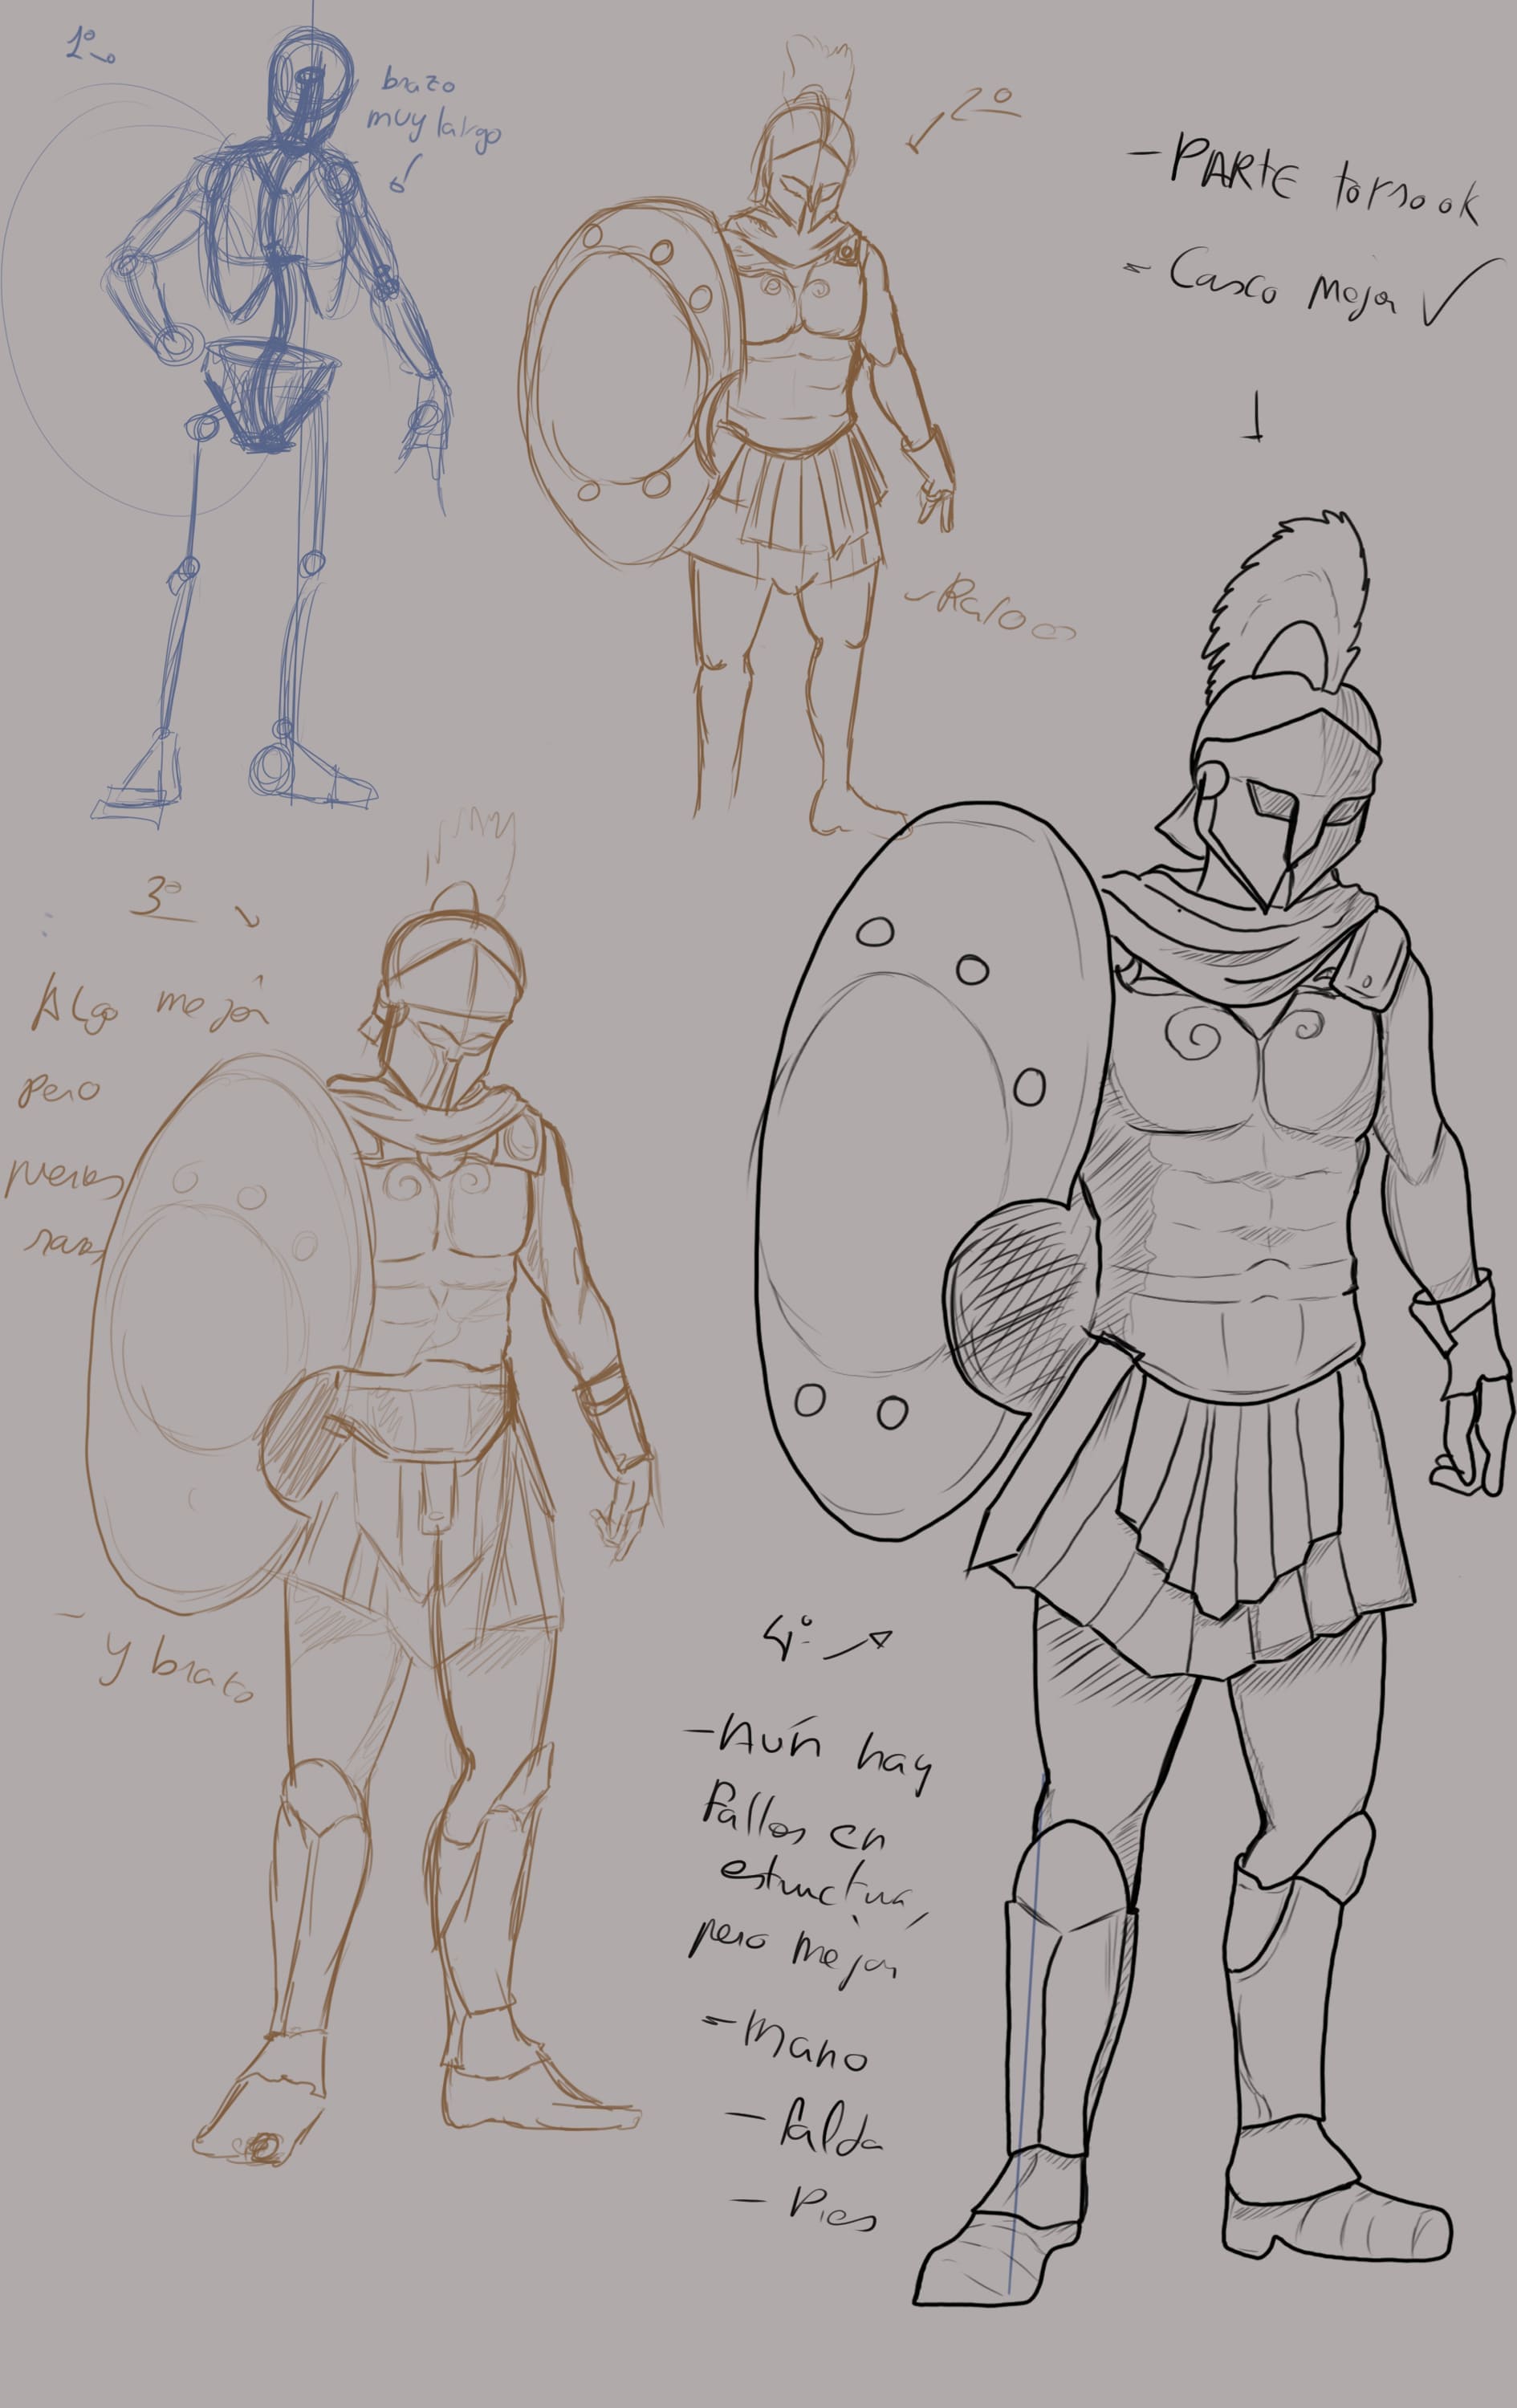 1º
brazo
muy largo
2º
- PARTE torso ok
- Casco Mejor ✓
3º
Algo mejor
pero
y brazo
4º
- Aún hay
fallos en
estructura,
pero mejor
- mano
- falda
- Pies